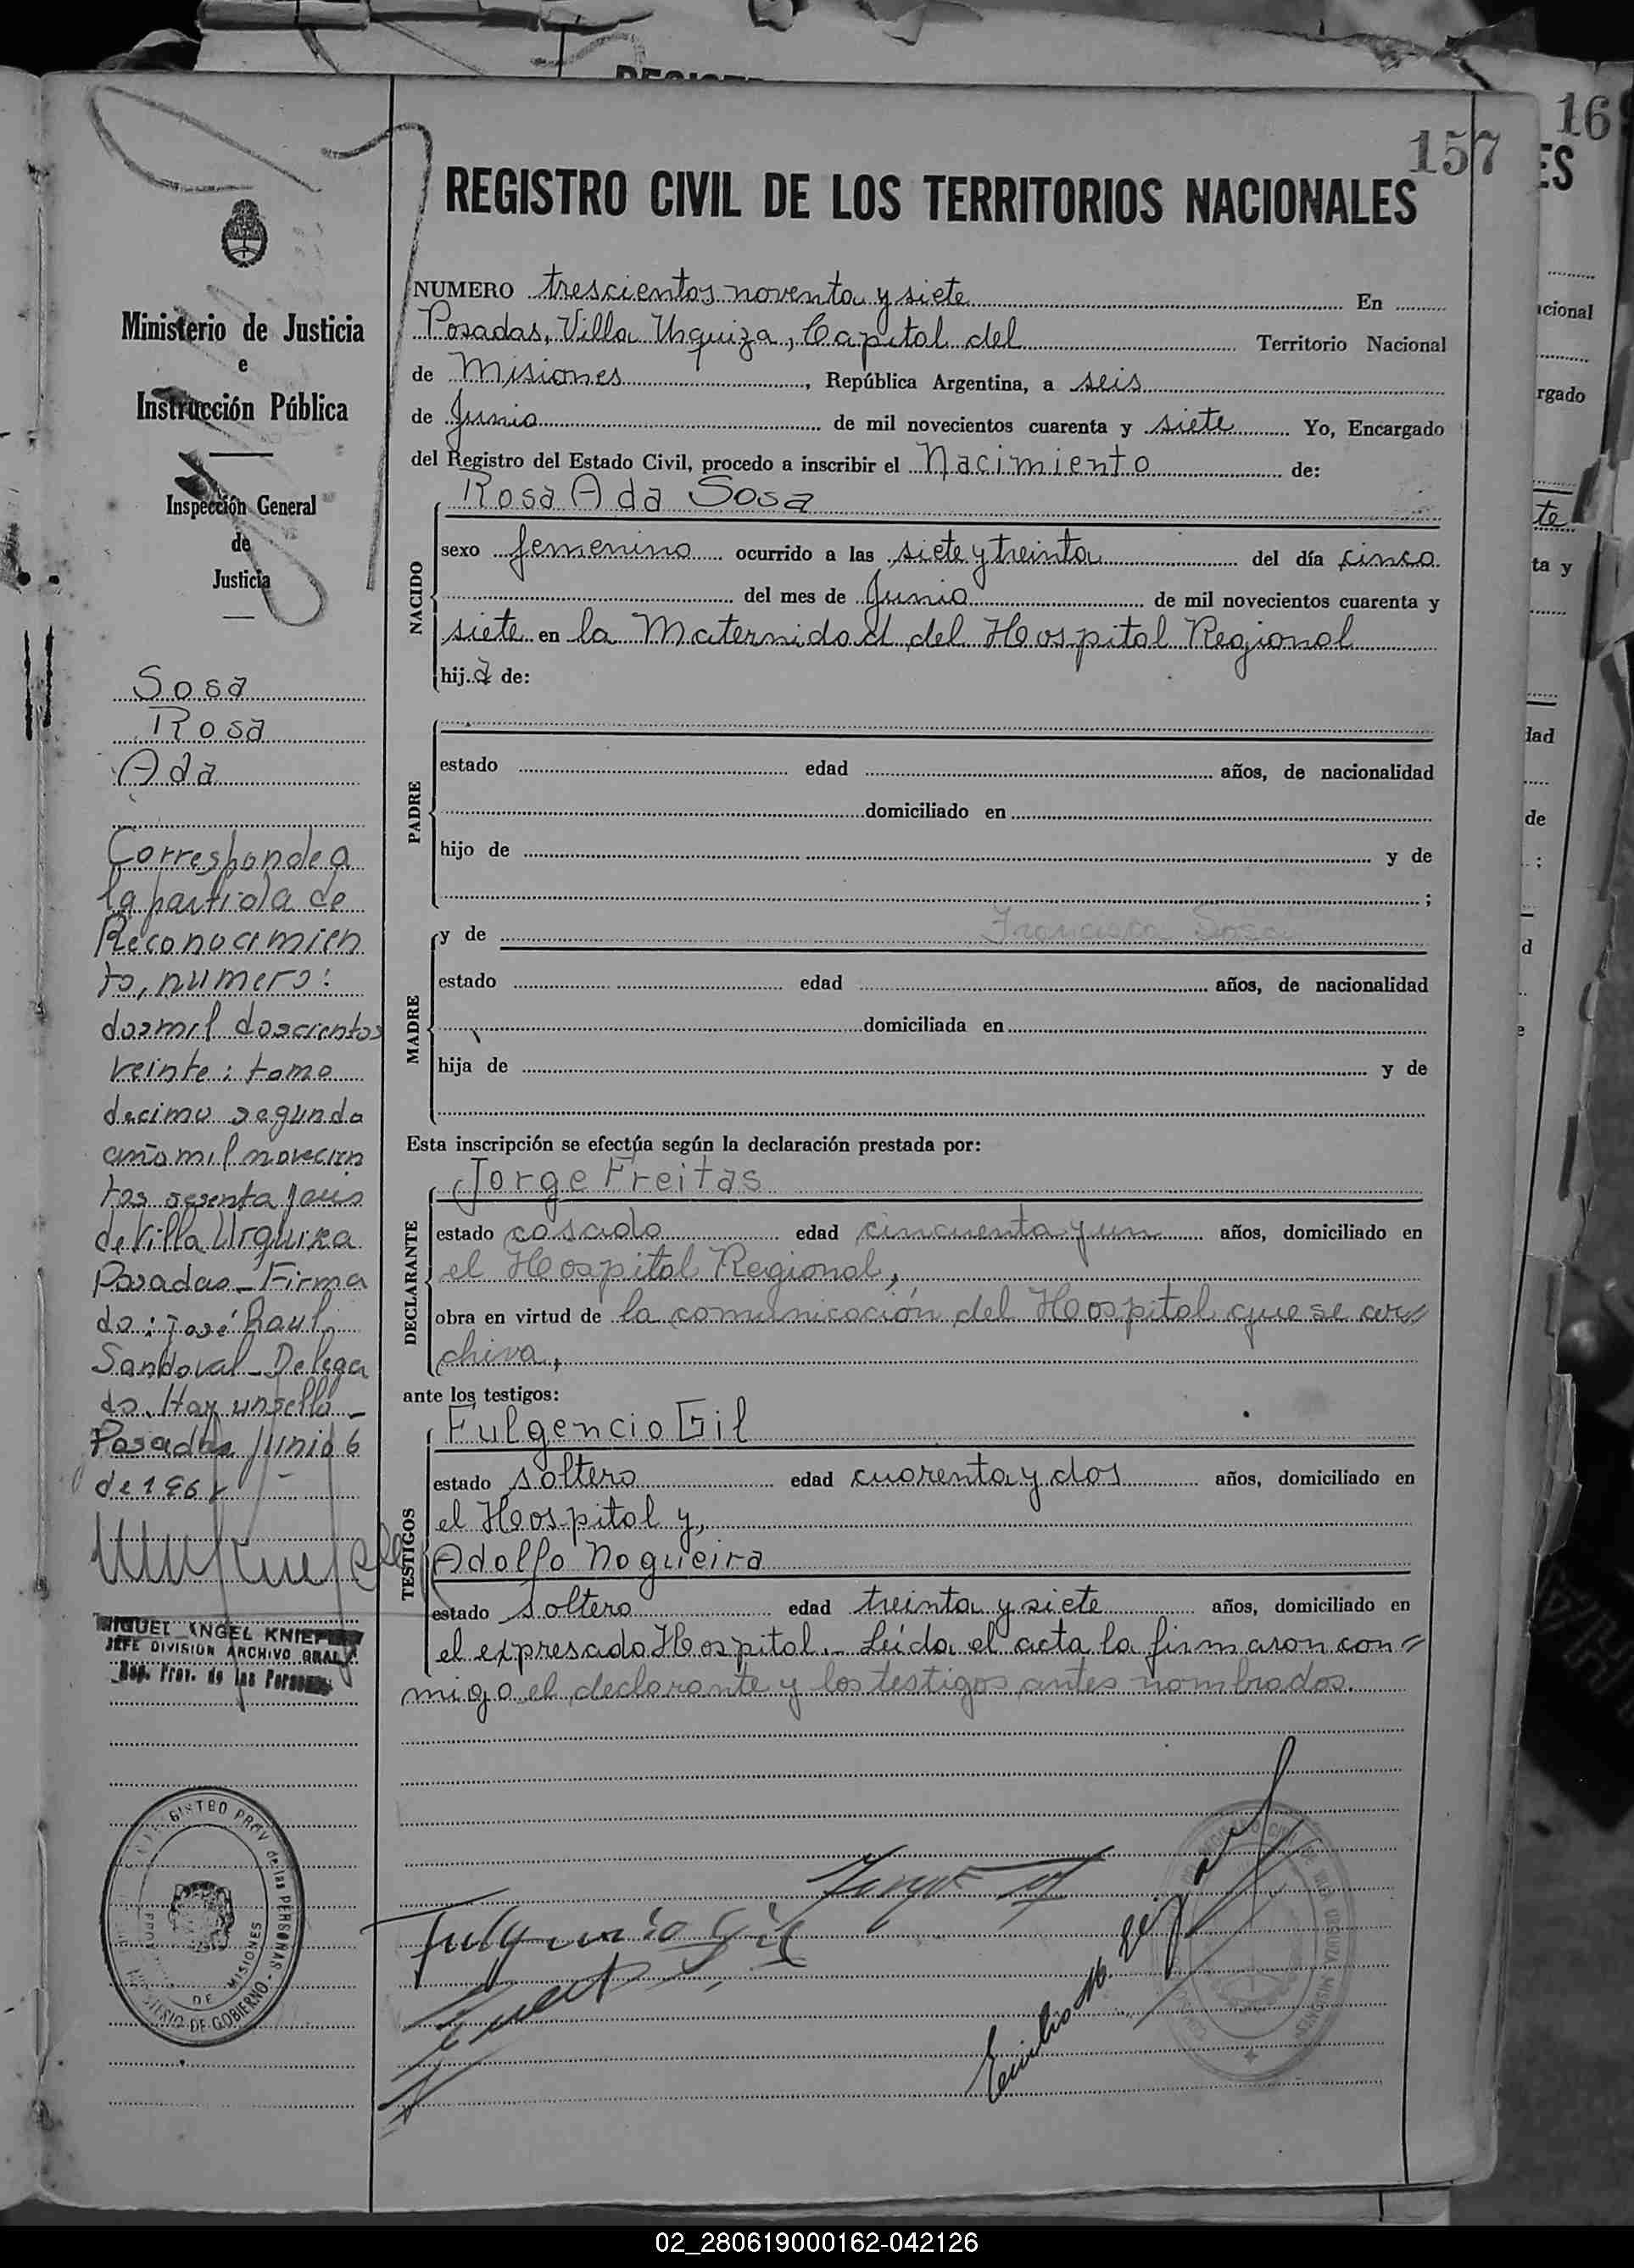 157
16
REGISTRO CIVIL DE LOS TERRITORIOS NACIONALES
ES
Ministerio de Justicia
e
Instrucción Pública
Inspección General
de
Justicia
Sosa
Rosa
Ada
Corresponde a
la partida de
Reconocimien
to, numero:
dosmil doscientos
veinte: tomo
decimo segundo
año mil novecien
tos sesenta y seis
de Villa Urquiza
Posadas - Firma
do: José Raul
Sandoval - Delega
do. Hay un sello -
Posadas Junio 6
de 196
MIGUEL ANGEL
JEFE DIVISION ARCHIVO GRAL
Reg. Prov. de las Personas
REGISTRO PROV. de las PERSONAS
MINISTERIO DE GOBIERNO
DE MISIONES
NUMERO trescientos noventa y siete En
Posadas, Villa Urquiza, Capital del Territorio Nacional
de Misiones, República Argentina, a seis
de Junio de mil novecientos cuarenta y siete Yo, Encargado
del Registro del Estado Civil, procedo a inscribir el Nacimiento de:
Rosa Ada Sosa
NACIDO
sexo femenino ocurrido a las siete y treinta del día cinco
del mes de Junio de mil novecientos cuarenta y
siete en la Maternidad del Hospital Regional
hija de:
PADRE
estado edad años, de nacionalidad
domiciliado en
hijo de y de
;
MADRE
y de Francisca Sosa
estado edad años, de nacionalidad
domiciliada en
hija de y de
Esta inscripción se efectúa según la declaración prestada por:
Jorge Freitas
DECLARANTE
estado casado edad cincuenta y un años, domiciliado en
el Hospital Regional,
obra en virtud de la comunicación del Hospital que se ar=
chiva,
ante los testigos:
Fulgencio Gil
TESTIGOS
estado soltero edad cuarenta y dos años, domiciliado en
el Hospital y,
Adolfo Nogueira
estado soltero edad treinta y siete años, domiciliado en
el expresado Hospital.- Leída el acta la firmaron con=
migo el declarante y los testigos antes nombrados.
Fulgencio Gil
Emilio M.
cional
rgado
te
ta y
dad
de
;
d
e
02_280619000162-042126